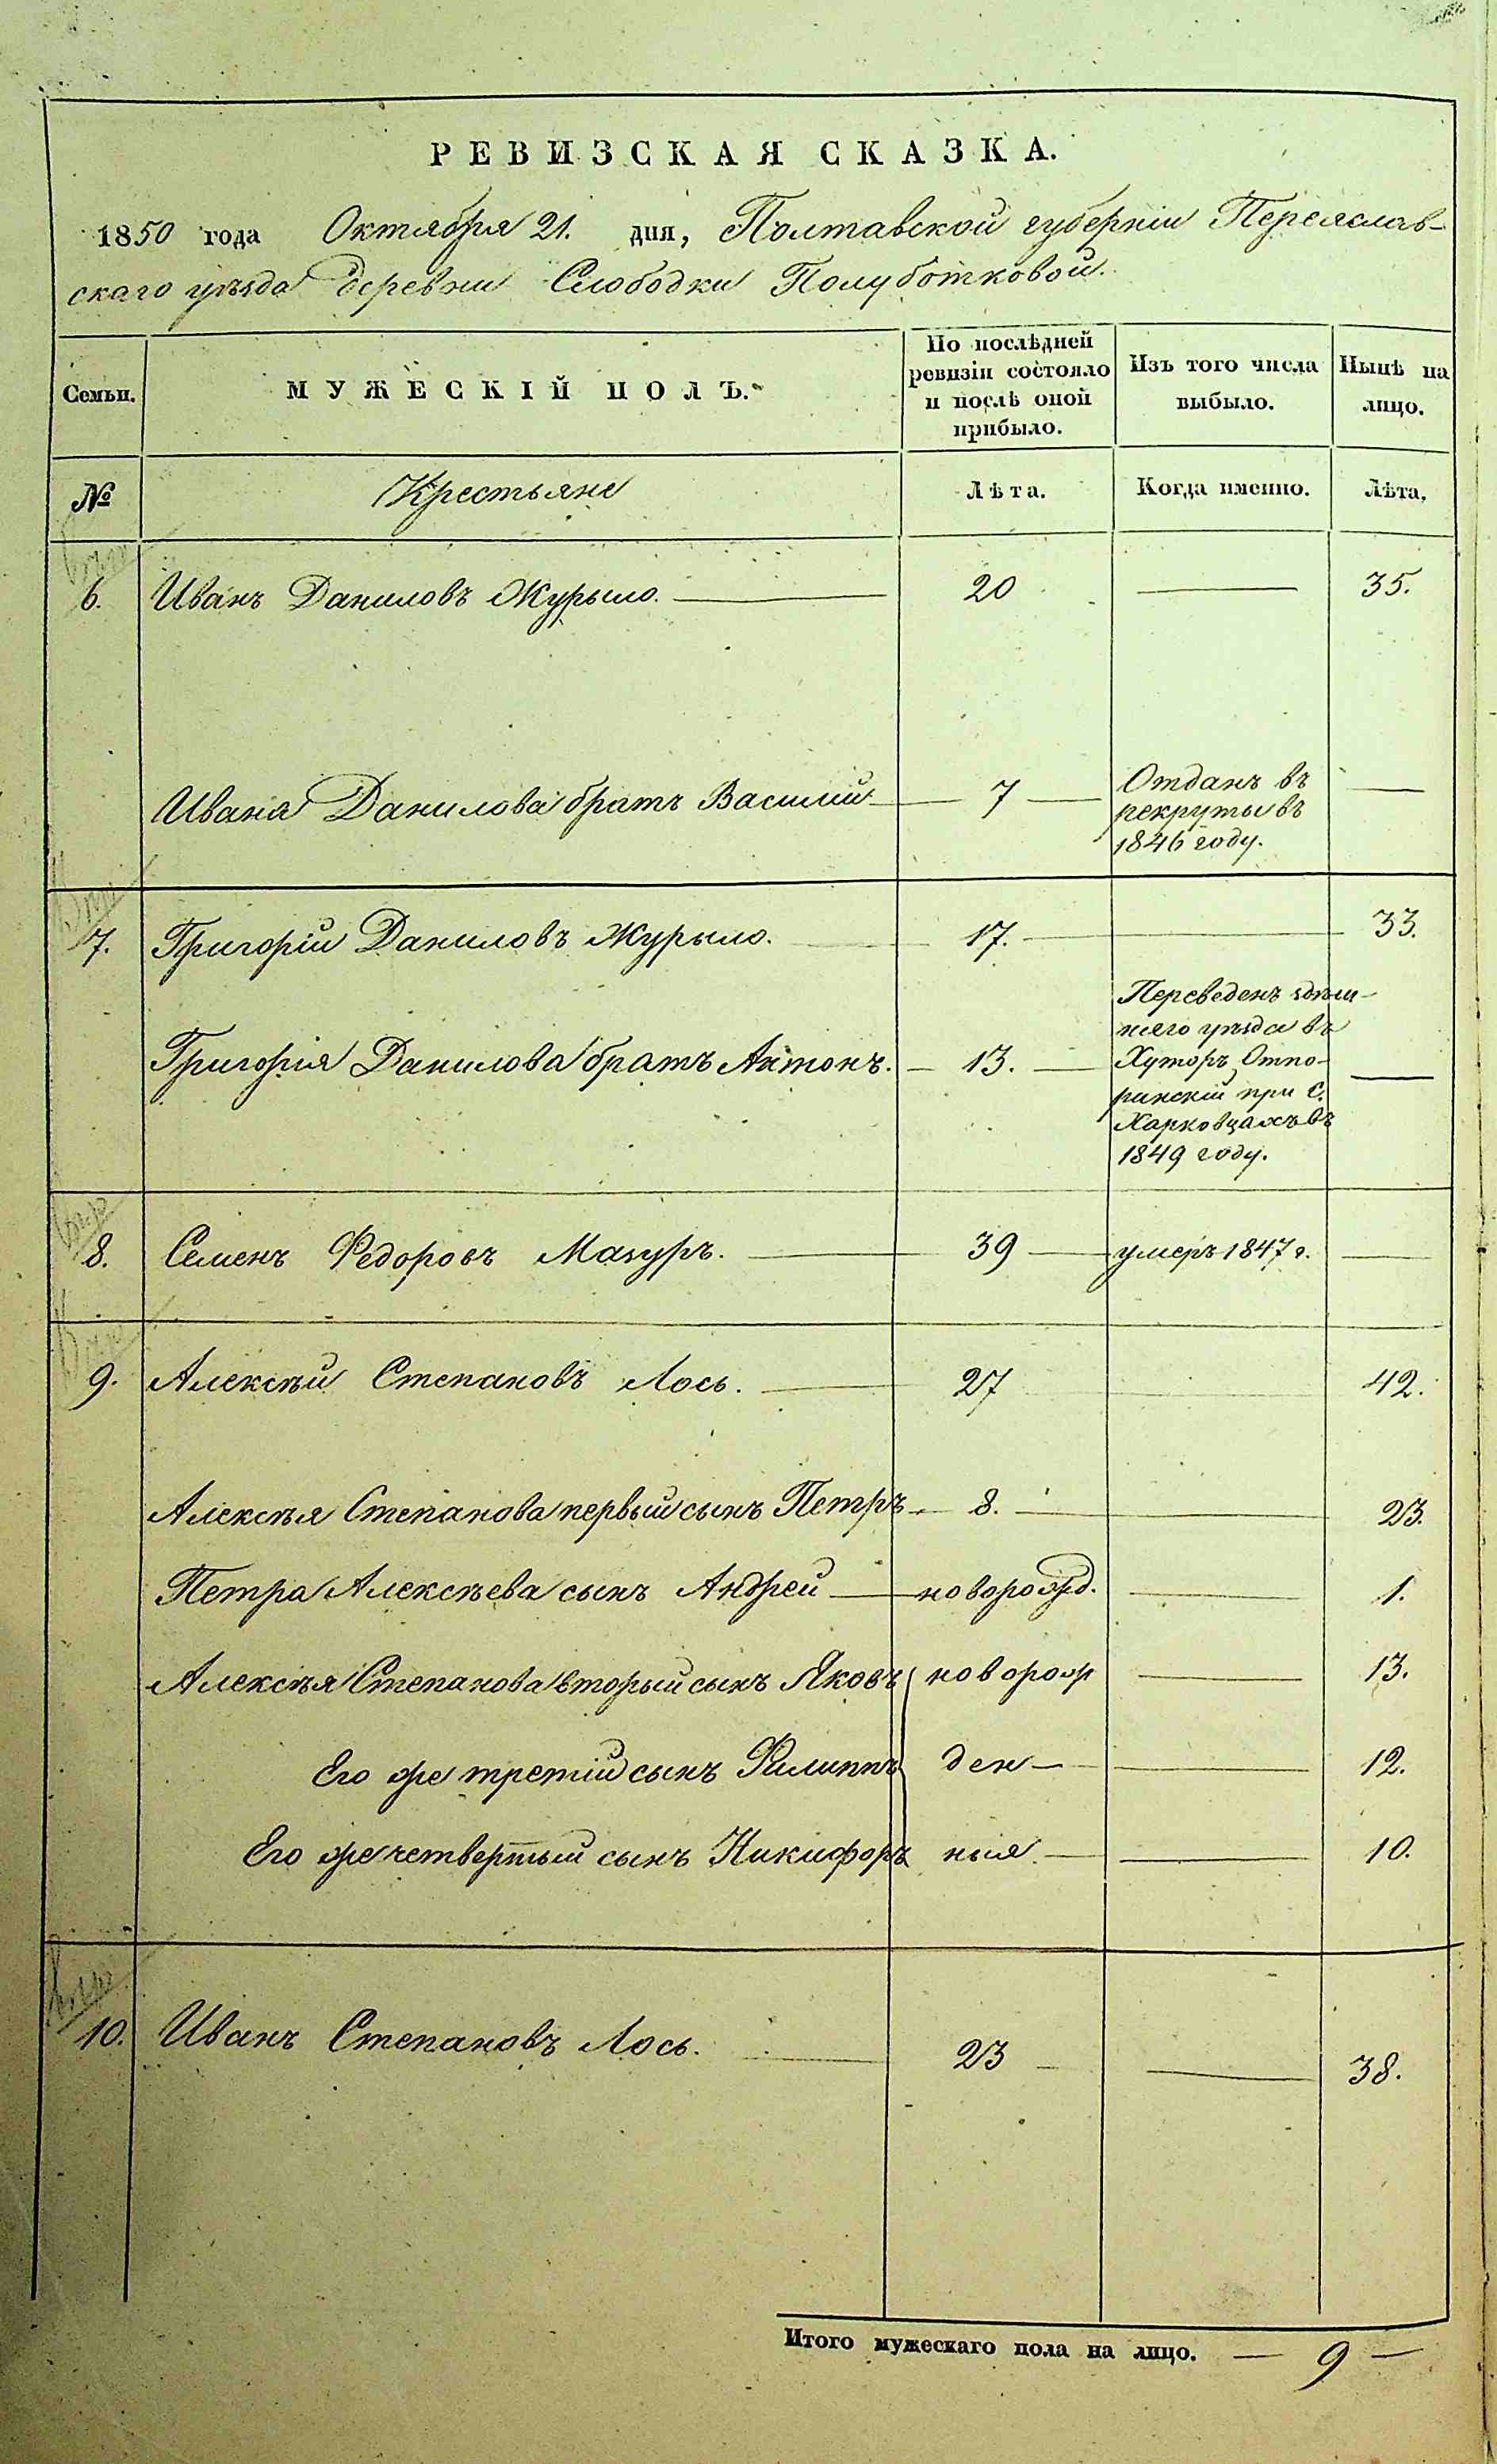 РЕВИЗСКАЯ СКАЗКА.
1850 года Октября 21. дня, Полтавской губерніи Переяслав-
скаго уѣзда деревни Слободки Полуботковой.
Семьи.
МУЖЕСКІЙ ПОЛЪ.
По послѣдней ревизіи состояло и послѣ оной прибыло.
Изъ того числа выбыло.
Нынѣ на лицо.
№ Крестьяне Лѣта. Когда именно. Лѣта.
6. Иванъ Даниловъ Журыло. 20 35.
Ивана Данилова братъ Василий 7 Отданъ въ
рекруты въ
1846 году.
7. Григорій Даниловъ Журыло. 17. 33.
Григорія Данилова братъ Антонъ. 13. Переведенъ здѣш-
няго уѣзда въ
Хуторъ
при С.
Харковцахъ въ
1849 году.
8. Семенъ Федоровъ Мазуръ. 39 умеръ 1847 г.
9. Алексѣй Степановъ Лось. 27 42.
Алексѣя Степанова первый сынъ Петръ 8. 23.
Петра Алексѣева сынъ Андрей новорожд. 1.
Алексѣя Степанова вторый сынъ Яковъ новорож 13.
Его же третій сынъ Филиппъ ден 12.
Его же четвертый сынъ Никифоръ ныя 10.
10. Иванъ Степановъ Лось. 23 38.
Итого мужескаго пола на лицо. — 9 —